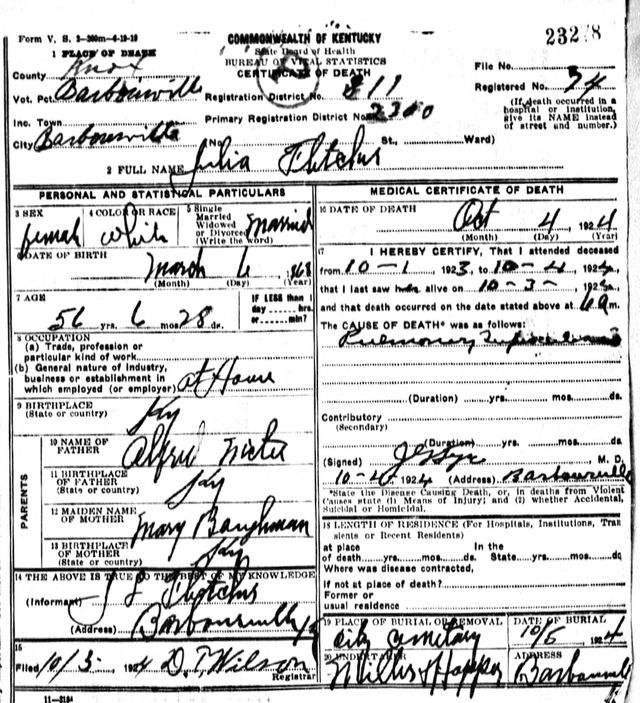 Form V. S. 2-300m-4-19-19
COMMONWEALTH OF KENTUCKY
23278
1 PLACE OF DEATH
State Board of Health
BUREAU OF VITAL STATISTICS
CERTIFICATE OF DEATH
County Knox
File No.
Vot. Pct. Barbourville
Registration District No. 811
Registered No. 34
Inc. Town
Primary Registration District No. 2300
(If death occurred in a hospital or institution, give its NAME instead of street and number.)
City Barbourville (No. St., Ward)
2 FULL NAME Julia Fletcher
PERSONAL AND STATISTICAL PARTICULARS
3 SEX
female
4 COLOR OR RACE
white
5 Single
Married
Widowed
or Divorced
(Write the word)
Married
6 DATE OF BIRTH
March 6 1868
(Month) (Day) (Year)
7 AGE
56 yrs. 6 mos. 28 ds.
IF LESS than 1
day hrs.
or min?
8 OCCUPATION
(a) Trade, profession or
particular kind of work
(b) General nature of industry,
business or establishment in
which employed (or employer) at Home
9 BIRTHPLACE
(State or country) Ky
PARENTS
10 NAME OF
FATHER Alfred
11 BIRTHPLACE
OF FATHER
(State or country) Ky
12 MAIDEN NAME
OF MOTHER Mary Baughman
13 BIRTHPLACE
OF MOTHER
(State or country) Ky
14 THE ABOVE IS TRUE TO THE BEST OF MY KNOWLEDGE
(Informant) Fletcher
(Address) Barbourville Ky
15
Filed 10/5 1924 D. T. Wilson
Registrar
11-3184
MEDICAL CERTIFICATE OF DEATH
16 DATE OF DEATH
Oct 4 1924
(Month) (Day) (Year)
17
I HEREBY CERTIFY, That I attended deceased
from 10-1 1923, to 10-4 1924
that I last saw her alive on 10-3- 1924,
and that death occurred on the date stated above at 6 a m.
The CAUSE OF DEATH* was as follows:
Pulmonary Tuberculosis
(Duration) yrs. mos. ds.
Contributory
(Secondary)
(Duration) yrs. mos. ds.
(Signed) M. D.
1924 (Address) Barbourville
*State the Disease Causing Death, or, in deaths from Violent
Causes state (1) Means of Injury; and (2) whether Accidental,
Suicidal or Homicidal.
18 LENGTH OF RESIDENCE (For Hospitals, Institutions, Transients or Recent Residents)
at place
of death yrs. mos. ds.
In the
State yrs. mos. ds.
Where was disease contracted,
if not at place of death?
Former or
usual residence
19 PLACE OF BURIAL OR REMOVAL
City Cemetary
DATE OF BURIAL
10/5 1924
20 UNDERTAKER
Hopper
ADDRESS
Barbourville